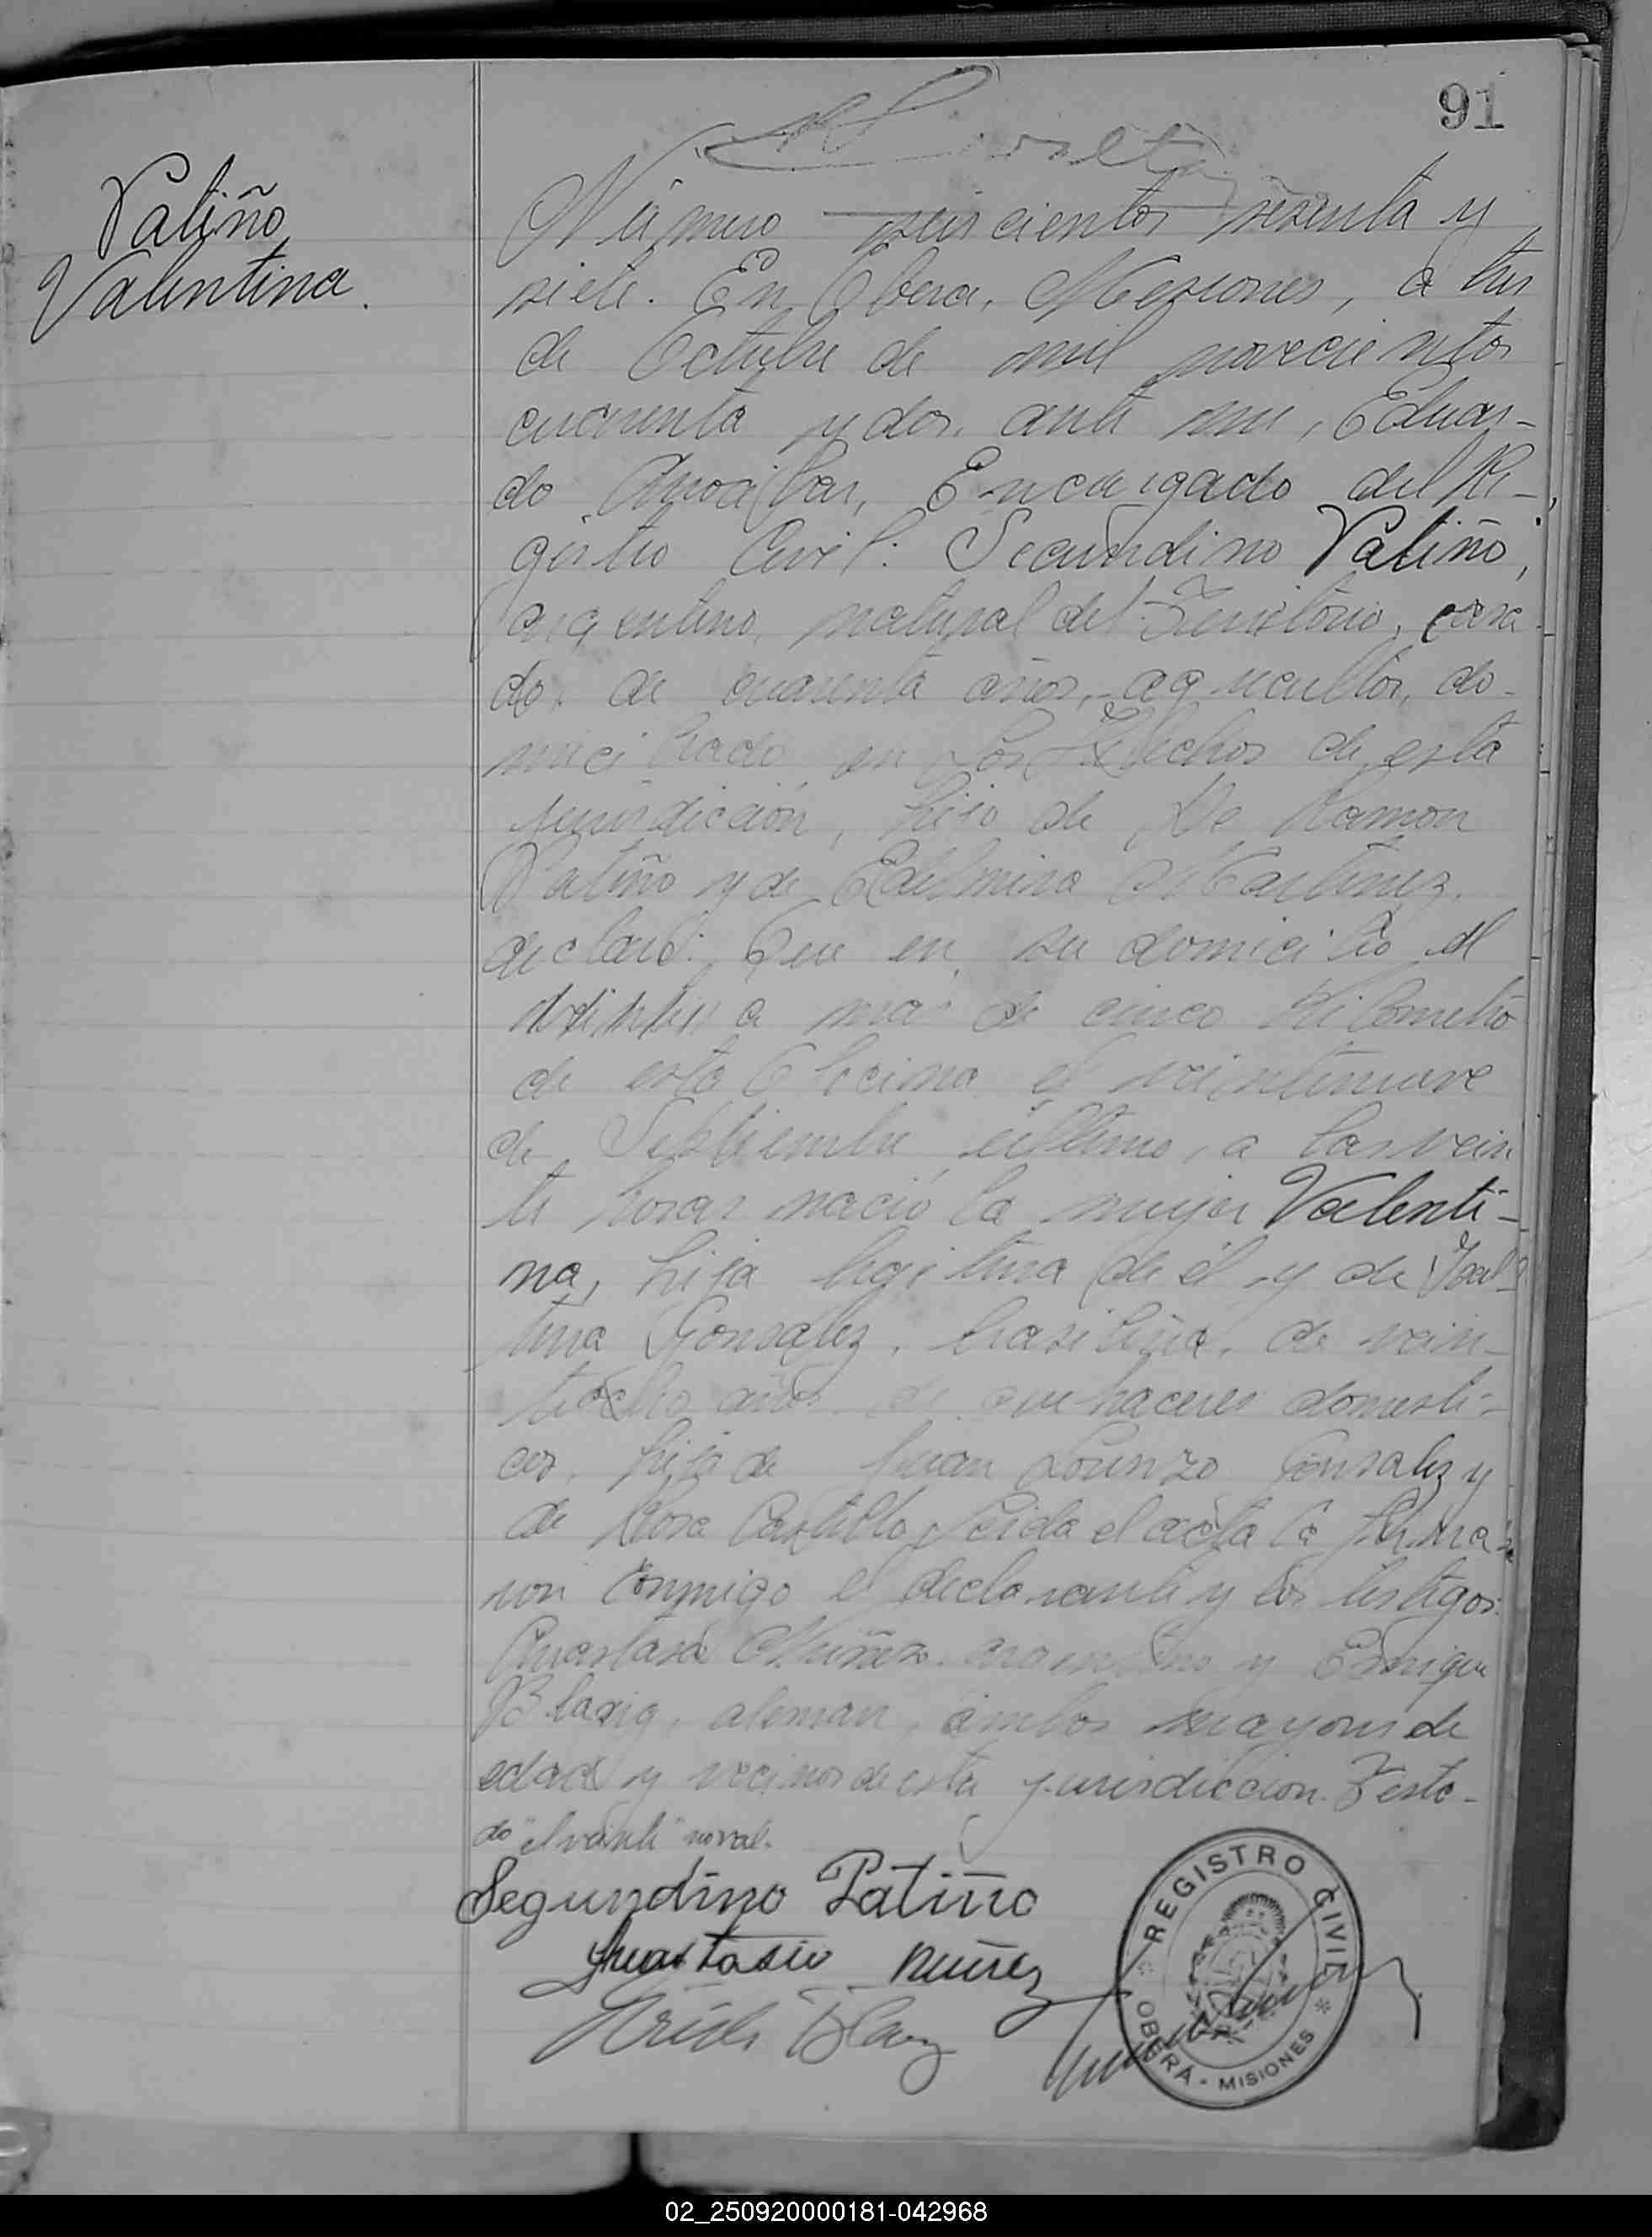 91
Patiño
Valentina.
Número seiscientos sesenta y
siete. En Oberá, Misiones, a tres
de Octubre de mil novecientos
cuarenta y dos, ante mi, Eduar-
do Encargado del Re-
gistro Civil: Secundino Patiño,
argentino, natural del Territorio, casa
do, de cuarenta años, agricultor, do-
miciliado en Los Helechos de esta
jurisdicción, hijo de De Ramon
Patiño y de Edelmira Martinez,
declaró: Que en su domicilio el
a mas de cinco kilometro
de esta Oficina el veintinueve
de Septiembre último, a las vein
te horas nació la mujer Valenti-
na, hija legitima de él y de
Gonzalez, brasileña, de vein-
tiocho años de quehaceres domesti-
cos, hija de Juan Lorenzo Gonzalez y
de Rosa Castillo. Leida el acta la firma-
ron conmigo el declarante y los testigos:
Anastasio Nuñez, argentino y Enrique
Blasig, aleman, ambos mayores de
edad y vecinos de esta jurisdiccion. Testa-
do no val.
Segundino Patiño
Anastasio nuñez
REGISTRO CIVIL
OBERÁ - MISIONES
02_250920000181-042968